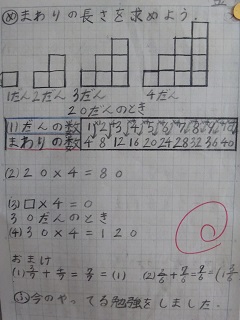 め まわりの長さを求めよう.
1だん 2だん 3だん 4だん
20だんのとき
(1)だんの数 1 2 3 4 5 6 7 8 9 10
まわりの数 4 8 12 16 20 24 28 32 36 40
(2) 20×4=80
(3) □×4=○
30だんのとき
(4) 30×4=120
おまけ
今のやってる勉強をしました.